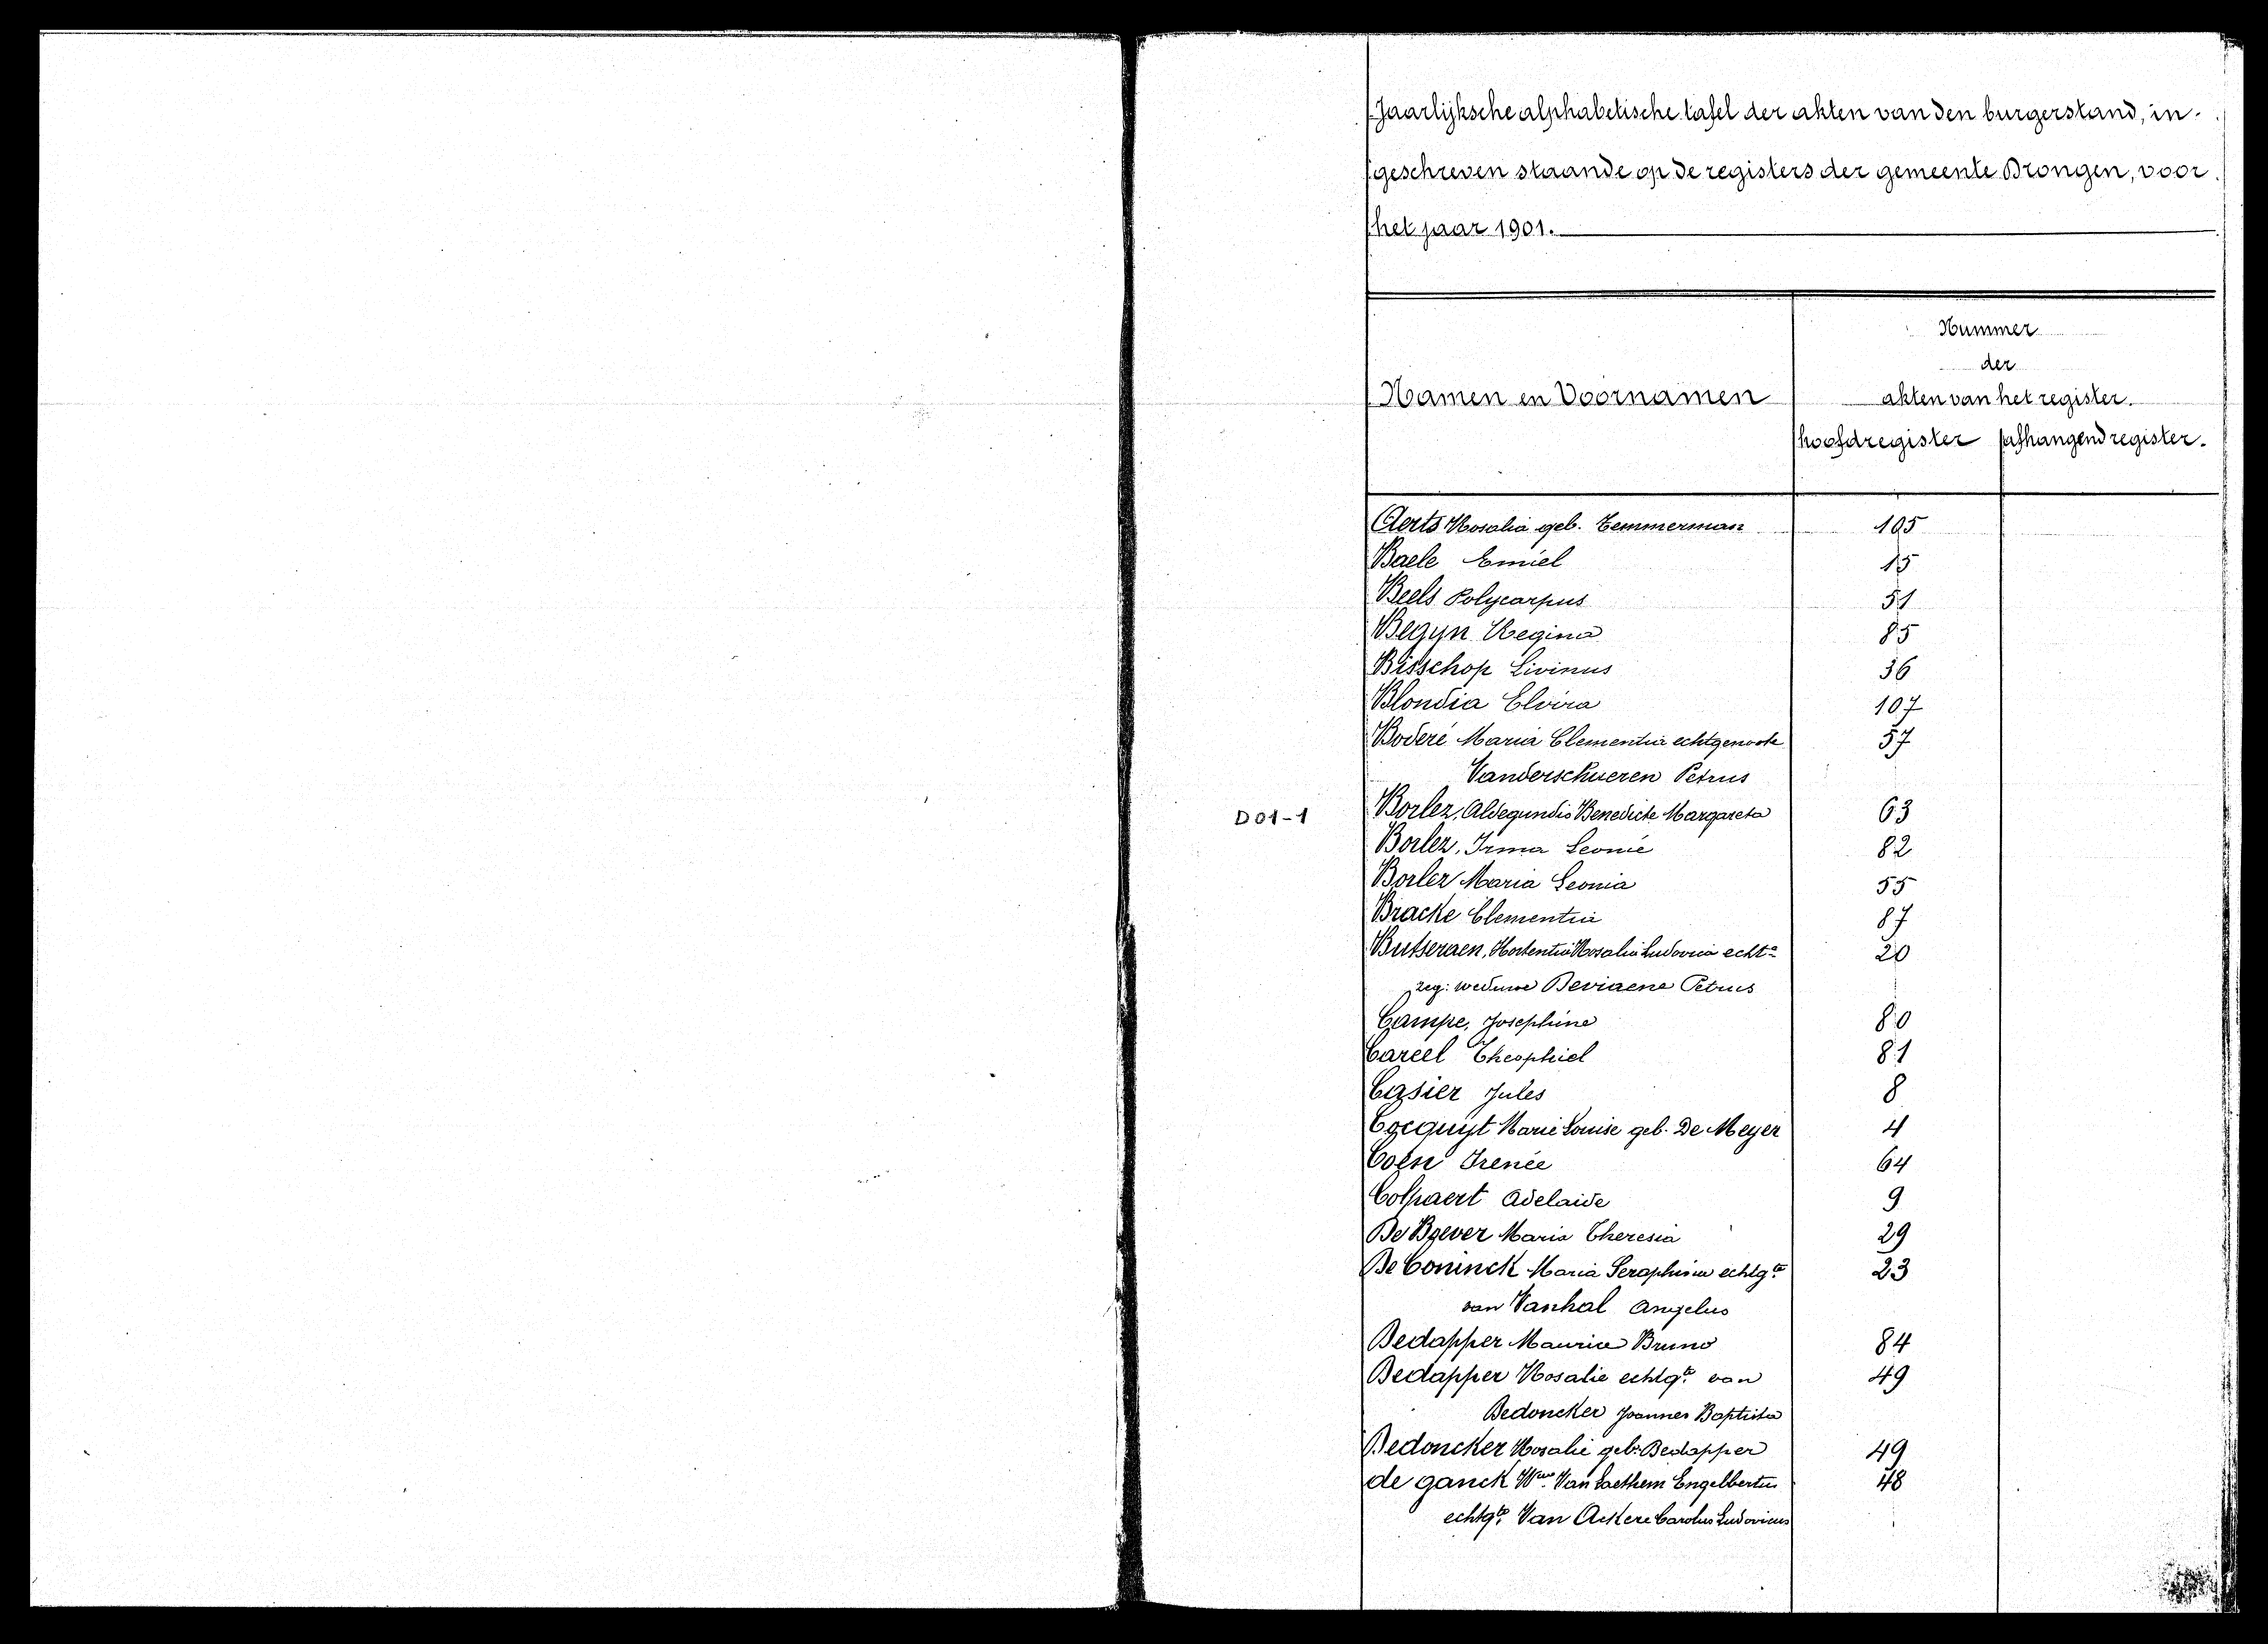 Jaarlijksche alphabetische tafel der akten van den burgerstand, in-
geschreven staande op de registers der gemeente Drongen, voor
het jaar 1901.
Nummer
der
Namen en Voornamen
akten van het register.
hoofdregister afhangend register.
Aerts Rosalia geb. Temmerman 105
Baele Emiel 15
Beels Polycarpus 51
Begyn Regina 85
Bisschop Livinus 36
Blondia Elvira 107
Boderé Maria Clementia echtgenoote 57
Vanderschueren Petrus
D01-1
Borlez, Aldegundis Benedicte Margareta 63
Borlez, Irma Leonie 82
Borlez Maria Leonia 55
Bracke Clementia 87
Butseraen, Hortentia Rosalia Ludovica echte 20
zeg: weduwe Deviaene Petrus
Campe, Josephine 80
Careel Theophiel 81
Casier Jules 8
Cocquyt Marie Louise geb. De Meyer 4
Coen Irenée 64
Colpaert Adelaide 9
De Boever Maria Theresia 29
De Coninck Maria Seraphina echtgte 23
van Vanhal Angelus
Dedapper Maurice Bruno 84
Dedapper Rosalie echtgte van 49
Dedoncker Joannes Baptista
Dedoncker Rosalie geb. Dedapper 49
de ganck Wwe Van Laethem Engelbertus 48
echtgte Van Ackere Carolus Ludovicus